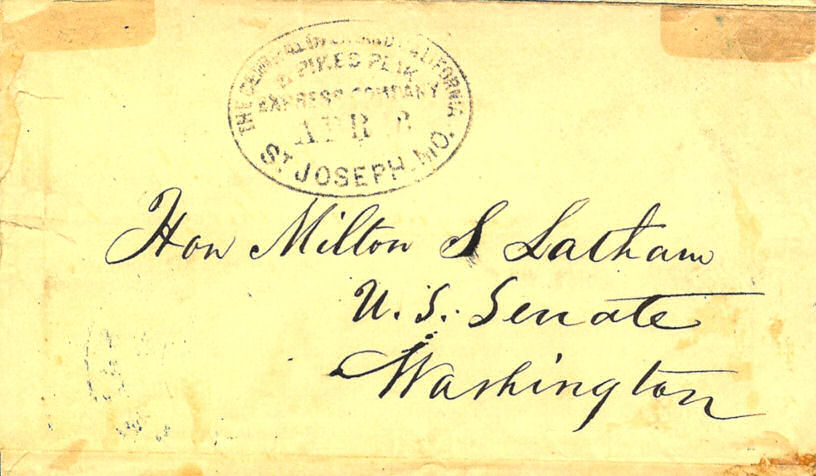 THE CENTRAL OVERLAND CALIFORNIA
& PIKES PEAK
EXPRESS COMPANY
APR
ST JOSEPH. MO.
Hon Milton S Latham
U. S. Senate
Washington